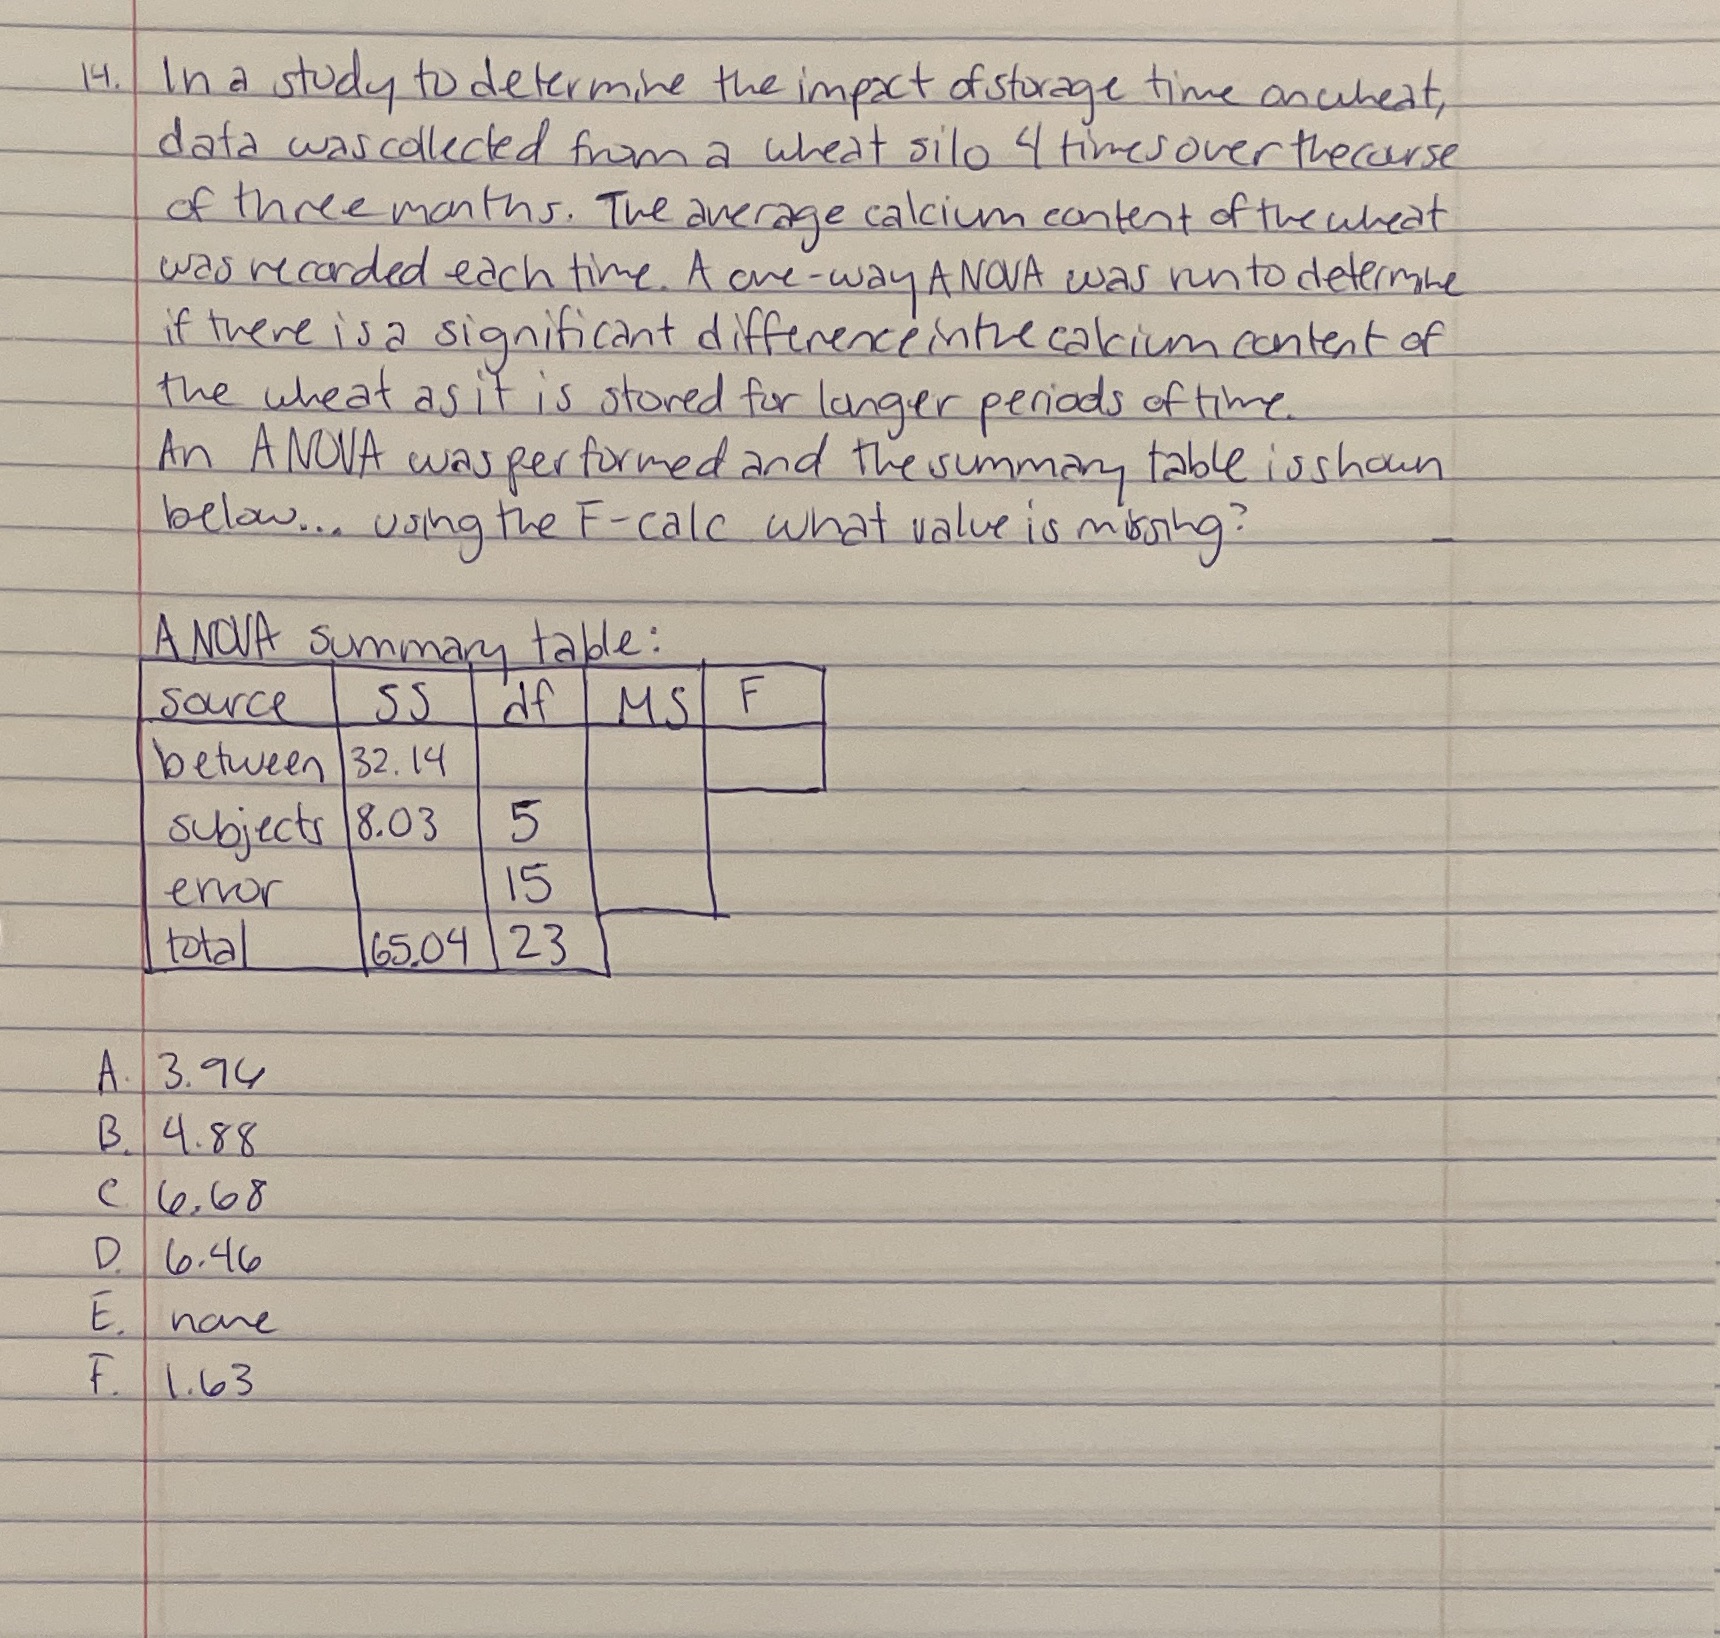 14. In a study to determine the impact of storage time on wheat,
data was collected from a wheat silo 4 times over the course
of three months. The average calcium content of the wheat
was recorded each time. A one-way ANOVA was run to determine
if there is a significant difference in the calcium content of
the wheat as it is stored for longer periods of time.
An ANOVA was performed and the summary table is shown
below... using the F-calc what value is missing?
ANOVA summary table:
source SS df MS F
between 32.14
subjects 8.03 5
error 15
total 65.04 23
A. 3.96
B. 4.88
C 6.68
D. 6.46
E. none
F. 1.63